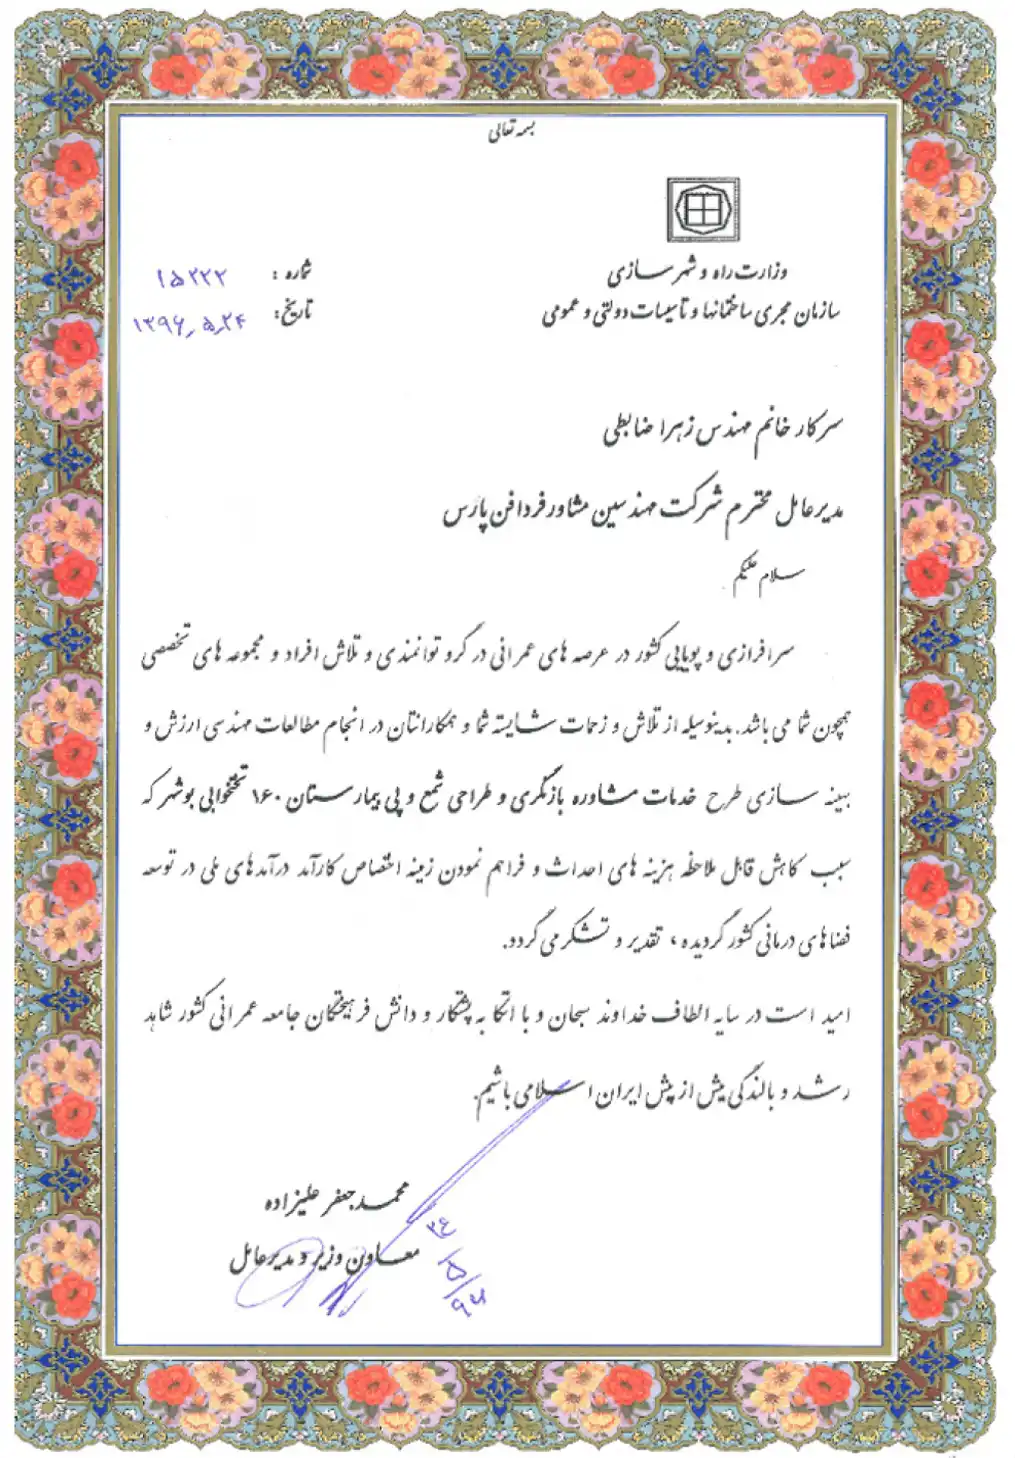 بسمه تعالی
وزارت راه و شهرسازی
سازمان مجری ساختمانها و تأسیسات دولتی و عمومی
شماره : ۱۵۲۲۲
تاریخ: ۱۳۹۶٫۵٫۲۴
سرکار خانم مهندس زهرا ضابطی
مدیرعامل محترم شرکت مهندسین مشاور فردافن پارس
سلام علیکم
سرافرازی و پویایی کشور در عرصه های عمرانی در گرو توانمندی و تلاش افراد و مجموعه های تخصصی
همچون شما می باشد. بدینوسیله از تلاش و زحمات شایسته شما و همکارانتان در انجام مطالعات مهندسی ارزش و
بهینه سازی طرح خدمات مشاوره بازنگری و طراحی شمع و پی بیمارستان ۱۶۰ تختخوابی بوشهر که
سبب کاهش قابل ملاحظه هزینه های احداث و فراهم نمودن زمینه اختصاص کارآمد درآمدهای ملی در توسعه
فضاهای درمانی کشور گردیده ، تقدیر و تشکر می گردد.
امید است در سایه الطاف خداوند سبحان و با اتکا به پشتکار و دانش فرهیختگان جامعه عمرانی کشور شاهد
رشد و بالندگی بیش از پیش ایران اسلامی باشیم.
محمدجعفر علیزاده
معاون وزیر و مدیرعامل